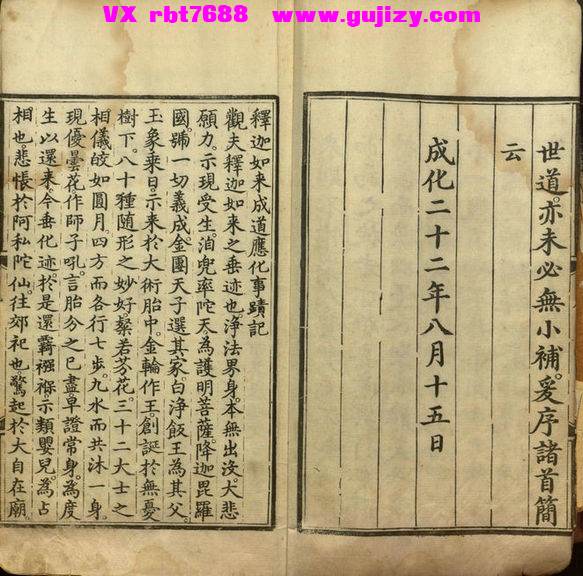 VX rbt7688 www.gujizy.com
世道。亦未必無小補。爰序諸首簡
云
成化二十二年八月十五日
釋迦如来成道應化事蹟記
觀夫釋迦如来之垂迹也。淨法界身。本無出沒。大悲
願力。示現受生。洎兜率陀天。為護明菩薩。降迦毘羅
國。號一切義成。金團天子選其家。白淨飯王為其父。
玉象乘日。示来於大術胎中。金輪作王。創誕於無憂
樹下。八十種随形之妙好。粲若芬花。三十二大士之
相儀。皎如圓月。四方而各行七步。九水而共沐一身。
現優曇花。作師子吼。言胎分之已盡。早證常身。為度
生以還来。今垂化迹。於是還覊襁褓。示類嬰兒。為占
相也。悲悵於阿私陀仙。往郊祀也。驚起於大自在廟。